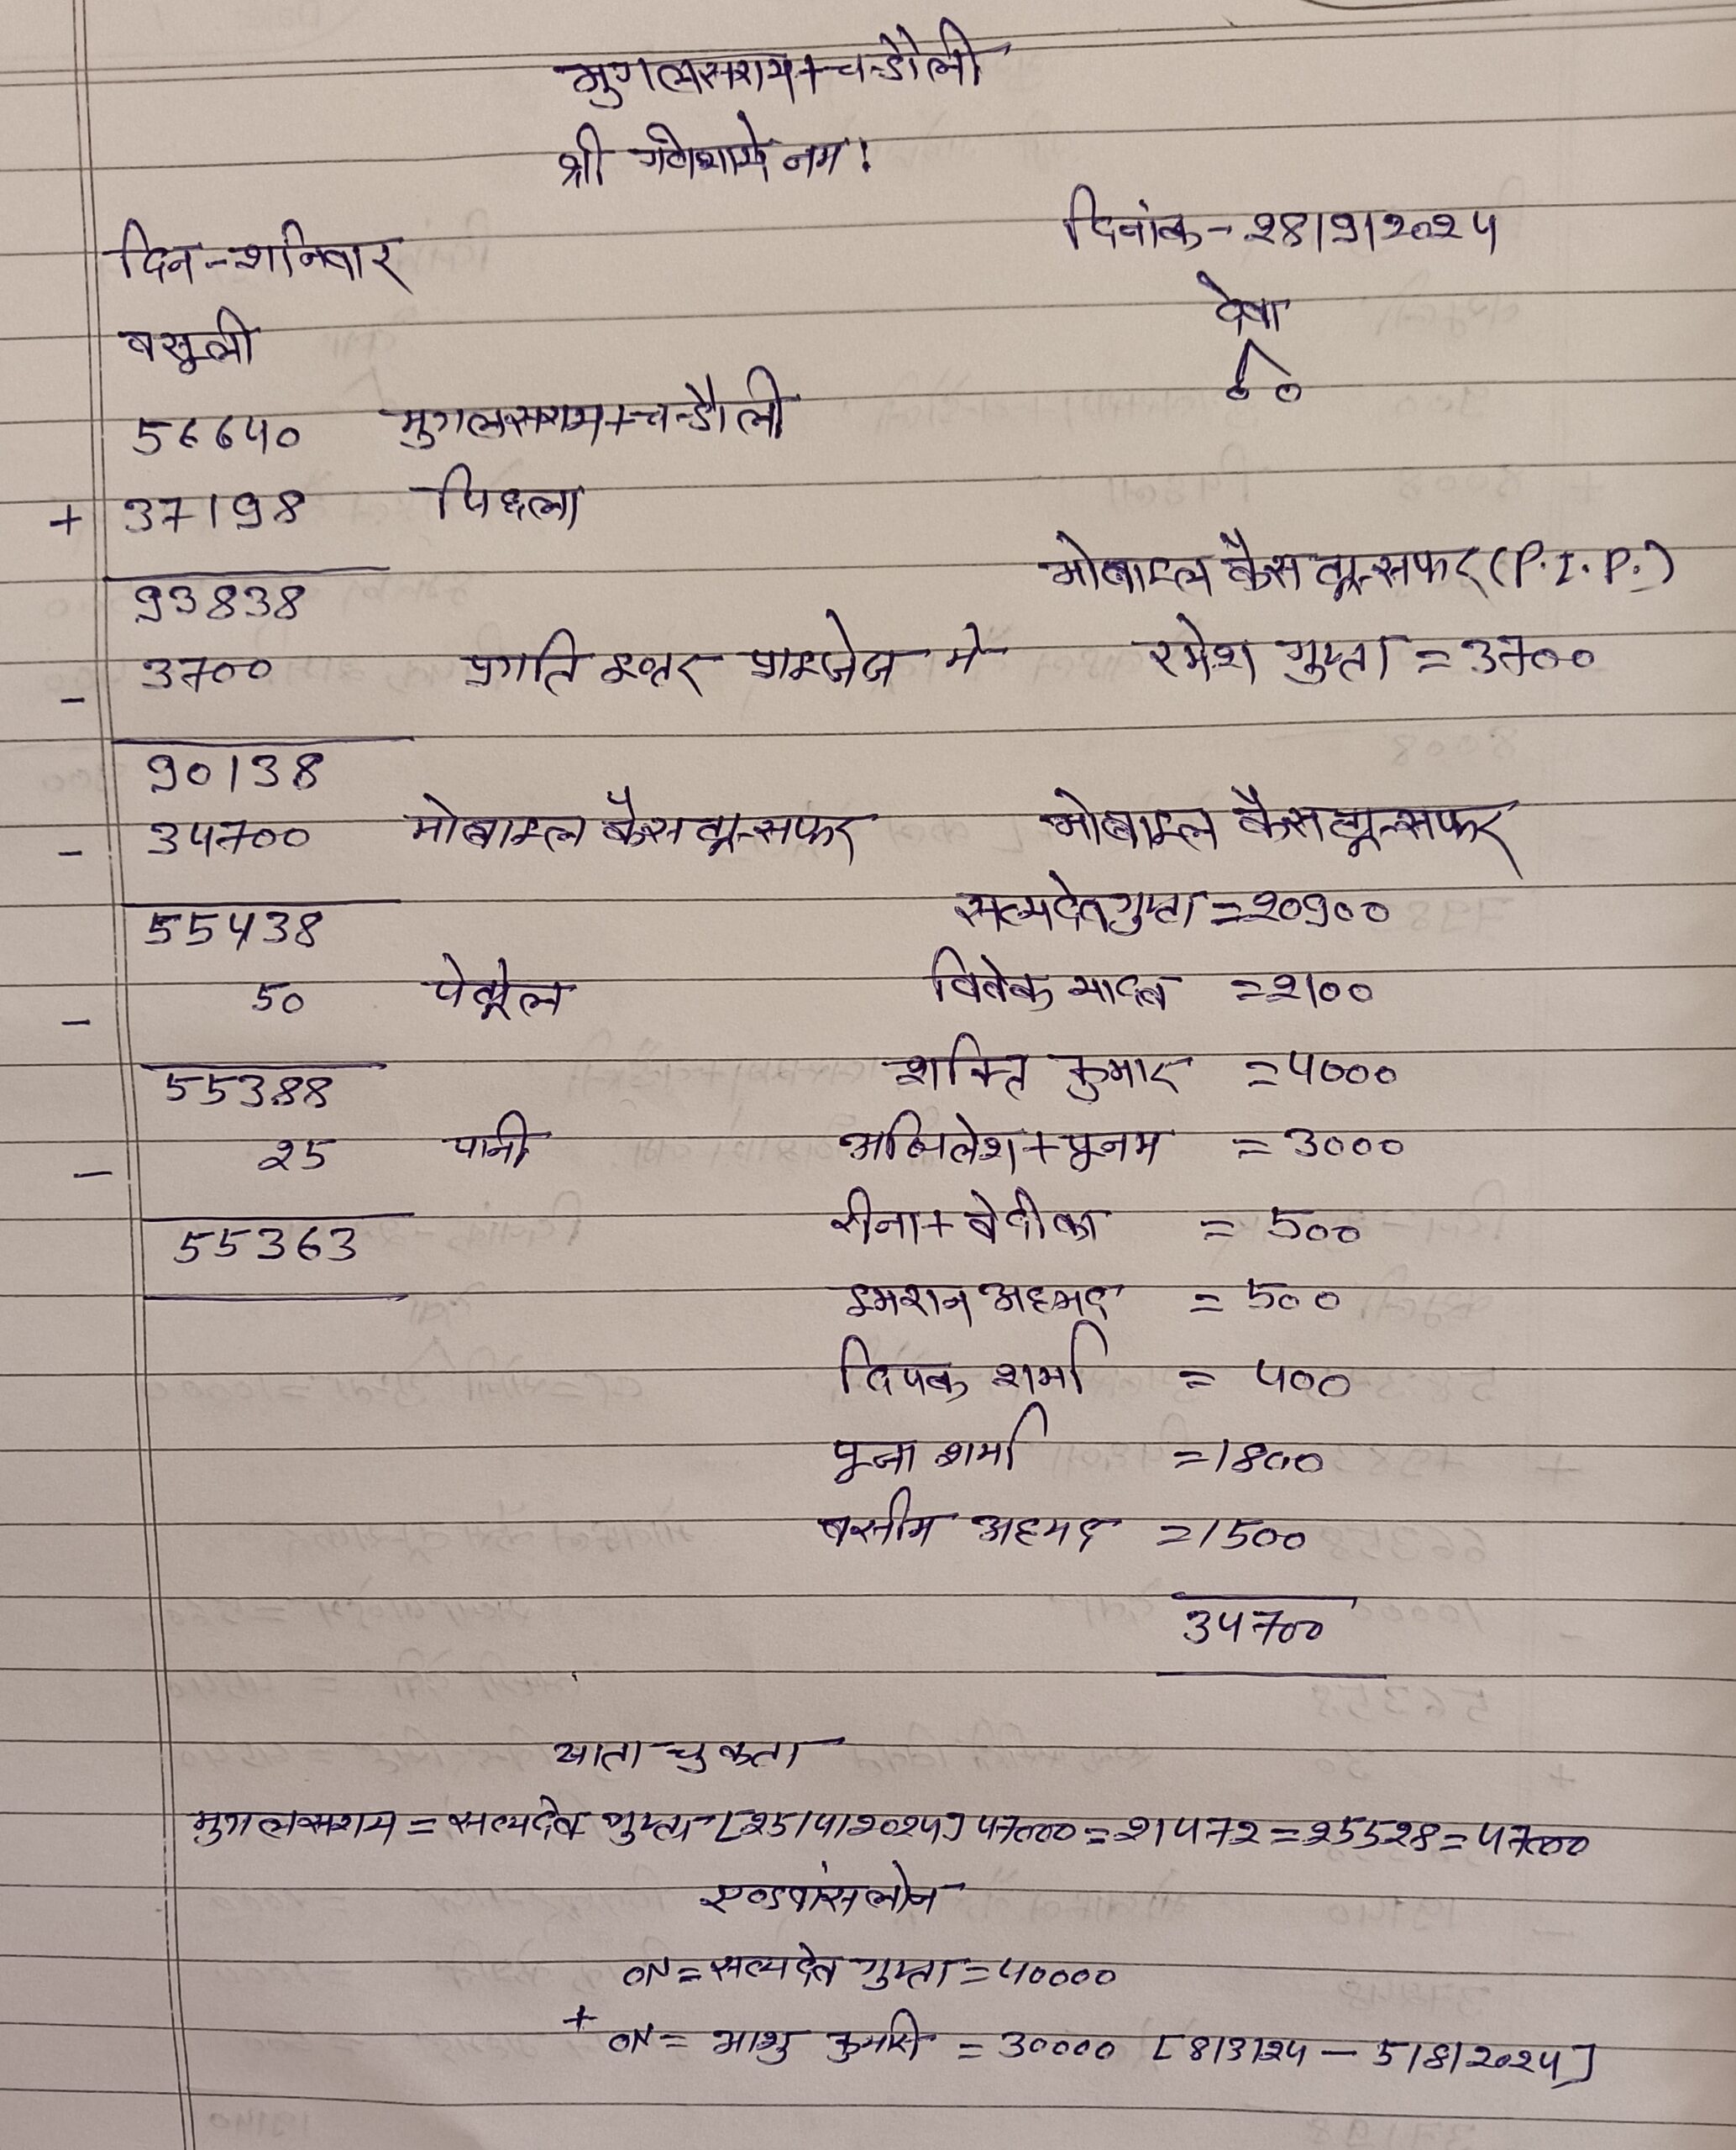 मुगलसराय+चन्डौली
श्री गणेशाये नम!
दिन-शनिवार
दिनांक-28|9|2024
देबा
60
बसूली
56640 मुगलसराय+चन्डौली
+ 37198 पिछला
93838
मोबाइल कैस ट्रान्सफर (P.I.P.)
- 3700 प्रगति इण्टर प्राइजेज मे रमेश गुप्ता = 3700
90138
- 34700 मोबाइल कैस ट्रान्सफर मोबाइल कैस ट्रान्सफर
55438 सत्यदेव गुप्ता = 20900
- 50 पेट्रोल विवेक यादव = 2100
55388 शक्ति कुमार = 4000
- 25 पानी अखिलेश+पूनम = 3000
55363 रीना+बेदीका = 500
इमरान अहमद = 500
दिपक शर्मा = 400
पूजा शर्मा = 1800
बसीम अहमद = 1500
34700
खाता चुकता
मुगलसराय = सत्यदेव गुप्ता-[25|4|2024] 47000 = 21472 = 25528 = 47000
एण्डवांस लोन
ON = सत्यदेव गुप्ता = 40000
+ ON = भाशु कुमारी = 30000 [8|3|24 - 5|8|2024]